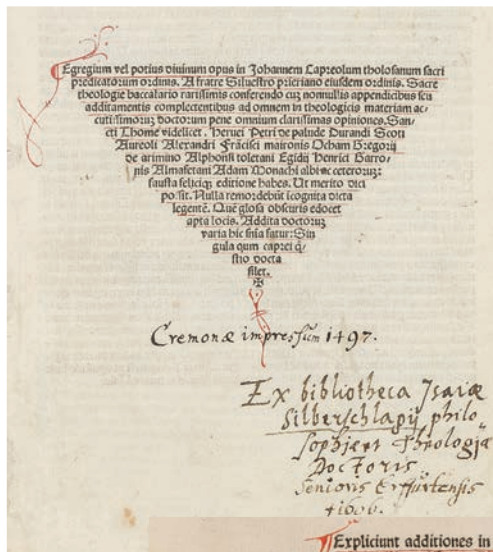 Egregium vel potius diuinum opus in Johannem Capreolum tholosanum sacri
predicatorum ordinis. A fratre Siluestro prieriano eiusdem ordinis. Sacre
theologie baccalario rarissimis conferendo cuz nonnullis appendicibus seu
additamentis complectentibus ad omnem in theologicis materiam ac
cutissimoruz doctorum pene omnium clarissimas opiniones. San
cti Thome videlicet. Heruei Petri de palude Durandi Scoti
Aureoli Alexandri Frãcisci maironis Ocham Gregorij
de arimino Alphonsi toletani Egidij Henrici Barro
nis Almasetani Adam Monachi albi ac ceteroruz:
fausta feliciqz editione habes. Ut merito dici
possit. Nulla remordebũt icognita dicta
legentẽ. Que glosa obscuris edocet
apta locis. Addita doctoruz
varia hic snia fatur: Sin
gula qum caprei q̃
stio docta
silet.
✠
Cremonæ impressum 1497.
Ex bibliotheca Isaiæ
Silberschlagij philo„
sophiæ et Theologiæ
Doctoris
Senioris Erffurtensis
1606.
Expliciunt additiones in